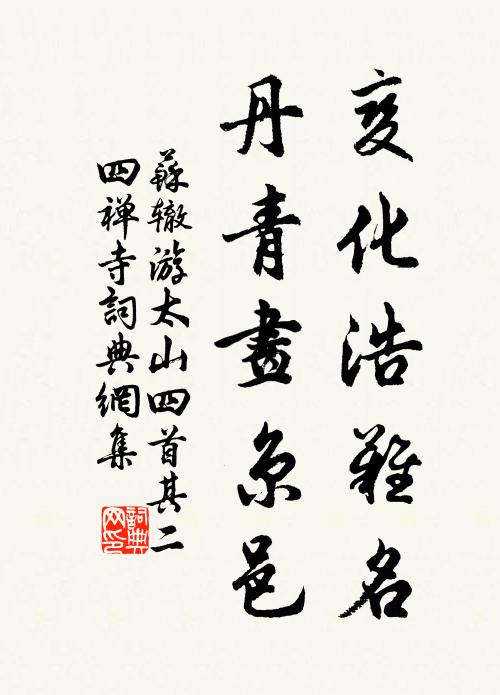 变化浩難名
丹青畫京邑
蘇辙游太山四首其二
四禅寺詞典網集
詞典网印